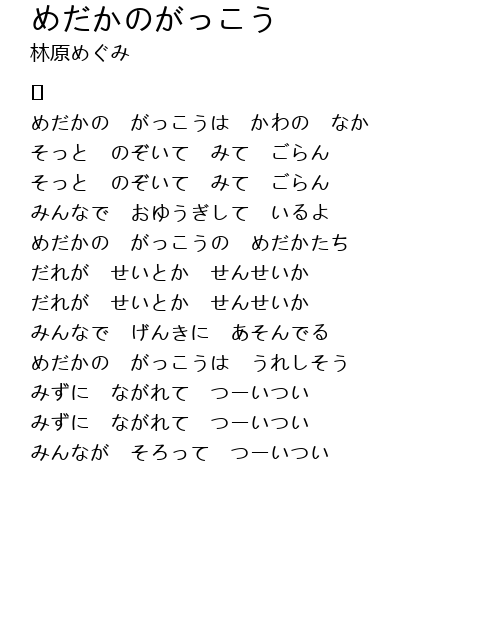 めだかのがっこう
林原めぐみ
めだかの　がっこうは　かわの　なか
そっと　のぞいて　みて　ごらん
そっと　のぞいて　みて　ごらん
みんなで　おゆうぎして　いるよ
めだかの　がっこうの　めだかたち
だれが　せいとか　せんせいか
だれが　せいとか　せんせいか
みんなで　げんきに　あそんでる
めだかの　がっこうは　うれしそう
みずに　ながれて　つーいつい
みずに　ながれて　つーいつい
みんなが　そろって　つーいつい